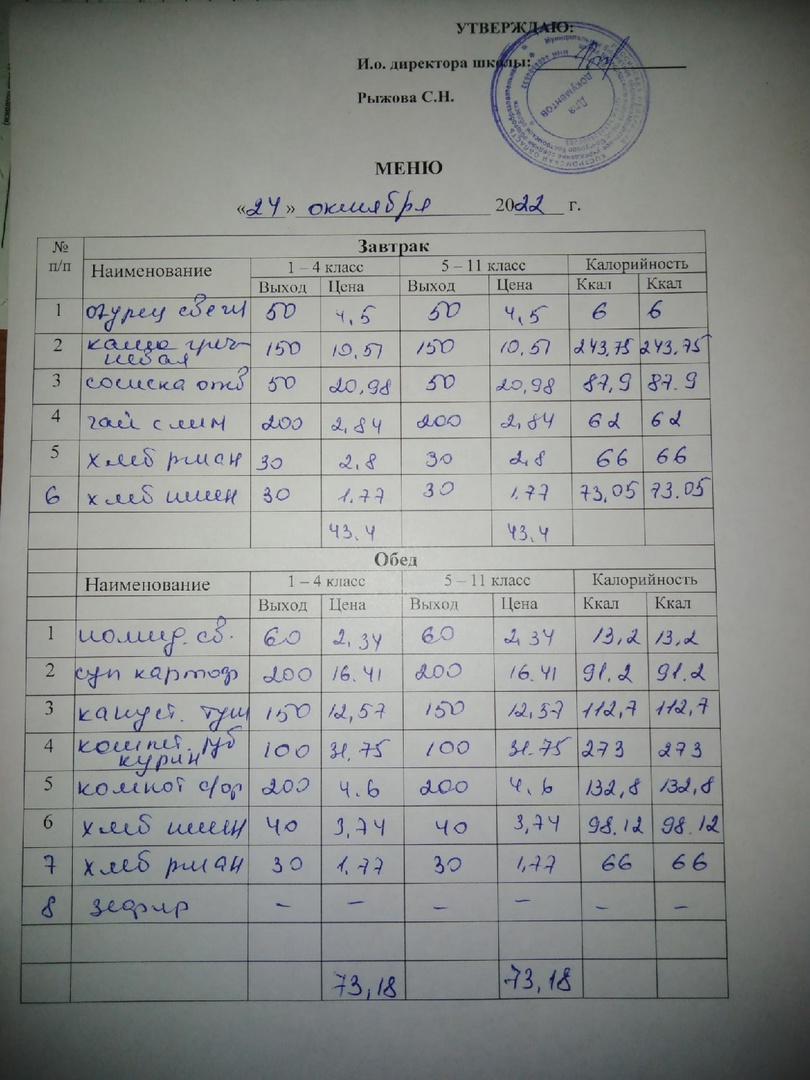 УТВЕРЖДАЮ:
И.о. директора школы:
Рыжова С.Н.
Для
документов
МЕНЮ
«24» октября 2022 г.
№ п/п Завтрак
Наименование 1 – 4 класс 5 – 11 класс Калорийность
Выход Цена Выход Цена Ккал Ккал
1 огурец свеж 50 4,5 50 4,5 6 6
2 каша греч- 150 10,51 150 10,51 243,75 243,75
невая
3 сосиска отв 50 20,98 50 20,98 87,9 87.9
4 чай с лим 200 2,84 200 2,84 62 62
5 хлеб ржан 30 2,8 30 2,8 66 66
6 хлеб пшен 30 1.77 30 1.77 73,05 73.05
43.4 43.4
Обед
Наименование 1 – 4 класс 5 – 11 класс Калорийность
Выход Цена Выход Цена Ккал Ккал
1 помид. св. 60 2,34 60 2,34 13,2 13,2
2 суп картоф 200 16.41 200 16.41 91.2 91.2
3 капуст. туш 150 12,57 150 12,57 112,7 112,7
4 котлет. руб 100 31.75 100 31.75 273 273
курин
5 компот с/фр 200 4.6 200 4.6 132,8 132,8
6 хлеб пшен 40 3,74 40 3,74 98.12 98.12
7 хлеб ржан 30 1.77 30 1,77 66 66
8 зефир – – – – – –
73,18 73,18